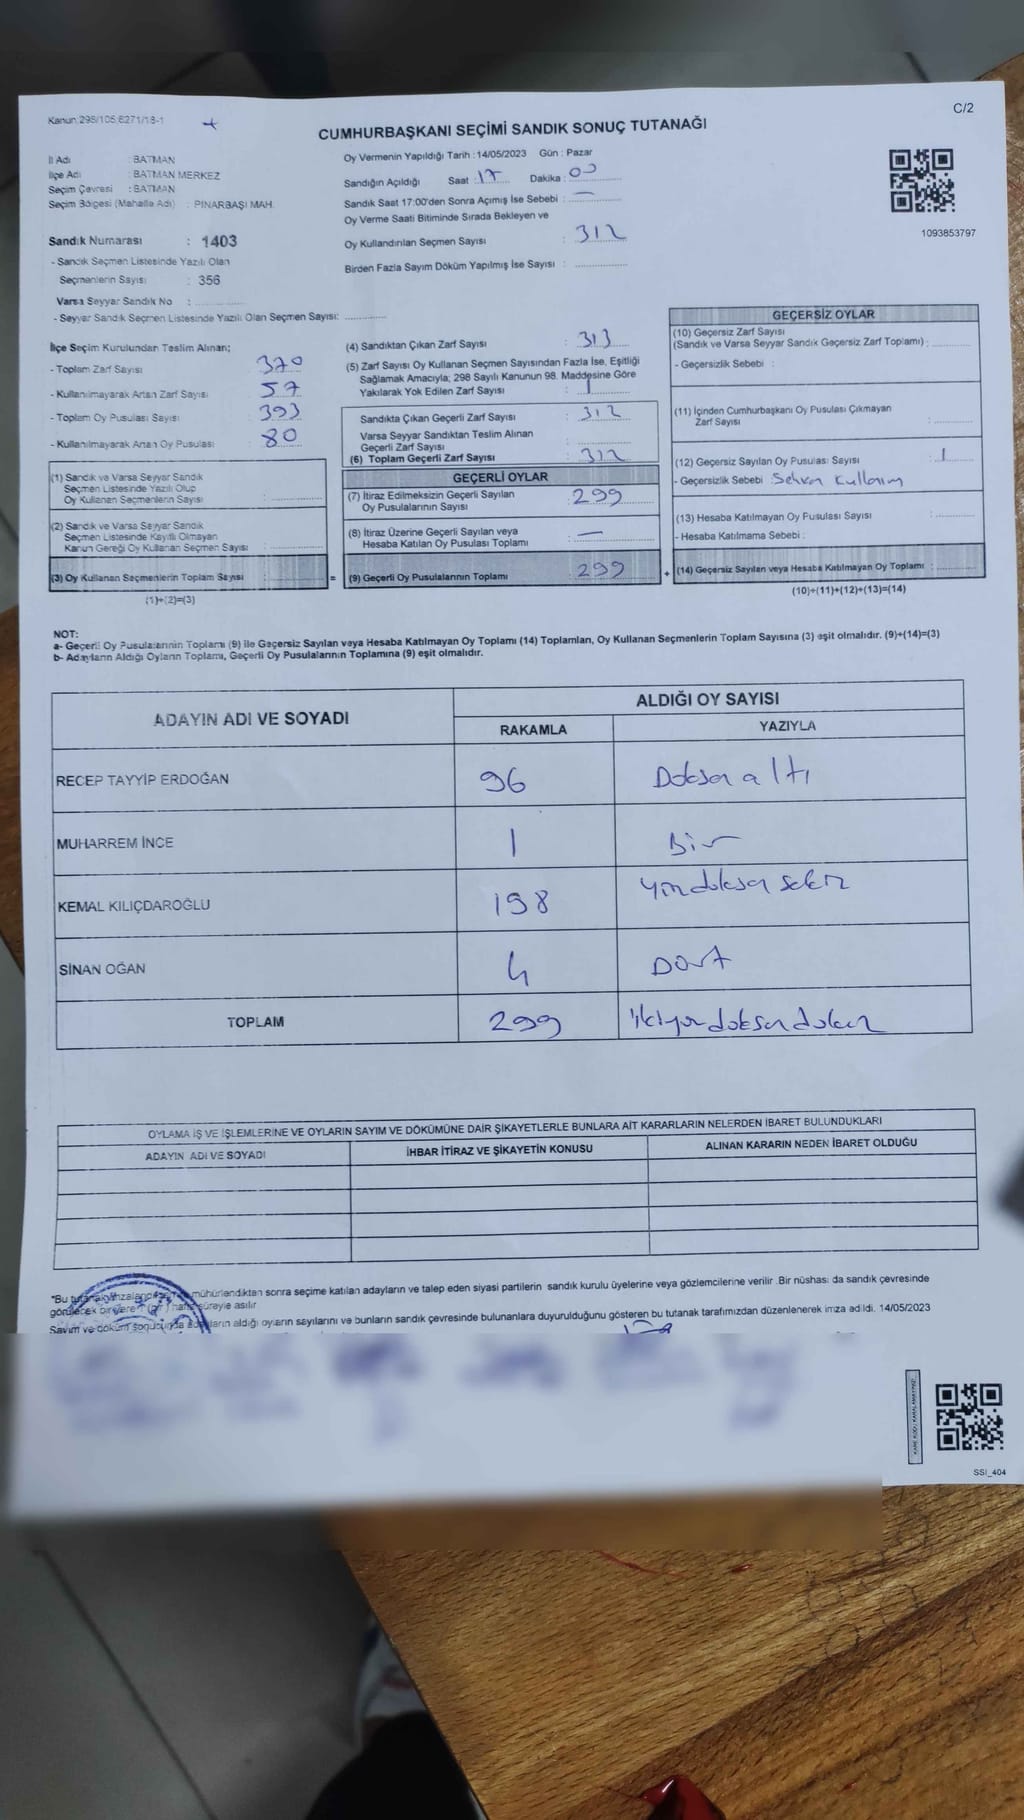 Kanun 298/105,6271/18-1
C/2
CUMHURBAŞKANI SEÇİMİ SANDIK SONUÇ TUTANAĞI
İl Adı : BATMAN
İlçe Adı : BATMAN MERKEZ
Seçim Çevresi : BATMAN
Seçim Bölgesi (Mahalle Adı) : PINARBAŞI MAH.
Sandık Numarası : 1403
- Sandık Seçmen Listesinde Yazılı Olan
Seçmenlerin Sayısı : 356
Varsa Seyyar Sandık No :
- Seyyar Sandık Seçmen Listesinde Yazılı Olan Seçmen Sayısı:
Oy Vermenin Yapıldığı Tarih : 14/05/2023 Gün : Pazar
Sandığın Açıldığı Saat : 17 Dakika : 00
Sandık Saat 17:00'den Sonra Açımış İse Sebebi : —
Oy Verme Saati Bitiminde Sırada Bekleyen ve
Oy Kullandırılan Seçmen Sayısı : 312
Birden Fazla Sayım Döküm Yapılmış İse Sayısı :
1093853797
İlçe Seçim Kurulundan Teslim Alınan;
- Toplam Zarf Sayısı 370
- Kullanılmayarak Artan Zarf Sayısı 57
- Toplam Oy Pusulası Sayısı 393
- Kullanılmayarak Artan Oy Pusulası 80
(1) Sandık ve Varsa Seyyar Sandık
Seçmen Listesinde Yazılı Olup
Oy Kullanan Seçmenlerin Sayısı :
(2) Sandık ve Varsa Seyyar Sandık
Seçmen Listesinde Kayıtlı Olmayan
Kanun Gereği Oy Kullanan Seçmen Sayısı :
(3) Oy Kullanan Seçmenlerin Toplam Sayısı : =
(1)+(2)=(3)
(4) Sandıktan Çıkan Zarf Sayısı : 313
(5) Zarf Sayısı Oy Kullanan Seçmen Sayısından Fazla İse, Eşitliği
Sağlamak Amacıyla; 298 Sayılı Kanunun 98. Maddesine Göre
Yakılarak Yok Edilen Zarf Sayısı : 1
Sandıkta Çıkan Geçerli Zarf Sayısı : 312
Varsa Seyyar Sandıktan Teslim Alınan
Geçerli Zarf Sayısı :
(6) Toplam Geçerli Zarf Sayısı : 312
GEÇERLİ OYLAR
(7) İtiraz Edilmeksizin Geçerli Sayılan
Oy Pusulalarının Sayısı : 299
(8) İtiraz Üzerine Geçerli Sayılan veya
Hesaba Katılan Oy Pusulası Toplamı : —
(9) Geçerli Oy Pusulalarının Toplamı : 299 +
GEÇERSİZ OYLAR
(10) Geçersiz Zarf Sayısı
(Sandık ve Varsa Seyyar Sandık Geçersiz Zarf Toplamı) :
- Geçersizlik Sebebi :
(11) İçinden Cumhurbaşkanı Oy Pusulası Çıkmayan
Zarf Sayısı :
(12) Geçersiz Sayılan Oy Pusulası Sayısı : 1
- Geçersizlik Sebebi
(13) Hesaba Katılmayan Oy Pusulası Sayısı :
- Hesaba Katılmama Sebebi :
(14) Geçersiz Sayılan veya Hesaba Katılmayan Oy Toplamı :
(10)+(11)+(12)+(13)=(14)
NOT:
a- Geçerli Oy Pusulalarının Toplamı (9) ile Geçersiz Sayılan veya Hesaba Katılmayan Oy Toplamı (14) Toplamları, Oy Kullanan Seçmenlerin Toplam Sayısına (3) eşit olmalıdır. (9)+(14)=(3)
b- Adayların Aldığı Oyların Toplamı, Geçerli Oy Pusulalarının Toplamına (9) eşit olmalıdır.
ADAYIN ADI VE SOYADI
ALDIĞI OY SAYISI
RAKAMLA YAZIYLA
RECEP TAYYİP ERDOĞAN 96 Doksan altı
MUHARREM İNCE 1 Bir
KEMAL KILIÇDAROĞLU 198 Yüzdoksan sekiz
SİNAN OĞAN 4 Dört
TOPLAM 299 ikiyüzdoksandokuz
OYLAMA İŞ VE İŞLEMLERİNE VE OYLARIN SAYIM VE DÖKÜMÜNE DAİR ŞİKAYETLERLE BUNLARA AİT KARARLARIN NELERDEN İBARET BULUNDUKLARI
ADAYIN ADI VE SOYADI İHBAR İTİRAZ VE ŞİKAYETİN KONUSU ALINAN KARARIN NEDEN İBARET OLDUĞU
"Bu tutanak imzalandıktan mühürlendikten sonra seçime katılan adayların ve talep eden siyasi partilerin sandık kurulu üyelerine veya gözlemcilerine verilir. Bir nüshası da sandık çevresinde
görülecek bir yere (bir) hafta süreyle asılır.
Sayım ve döküm sonucunda adayların aldığı oyların sayılarını ve bunların sandık çevresinde bulunanlara duyurulduğunu gösteren bu tutanak tarafımızdan düzenlenerek imza edildi. 14/05/2023
SSI_404